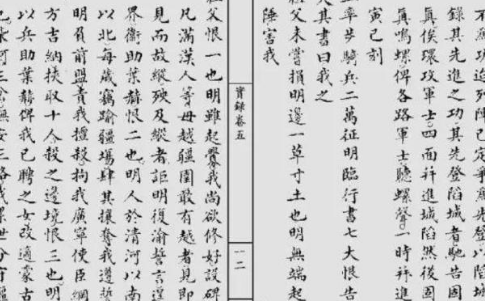 錄其先進之功其先登陷城者馳告固
真俟環攻軍士四面並進城陷然後固
真鳴螺俾各路軍士聽螺聲一時並進
寅巳刻
上率步騎兵二萬征明臨行書七大恨告
天其書曰我之
祖父未嘗損明邊一草寸土也明無端起
陲害我
實錄卷五
一二
祖父恨一也明雖起釁我尚欲修好設碑
凡滿漢人等毋越疆圉敢有越者見即
見而故縱殃及縱者詎明復渝誓言逞
界衛助葉赫恨二也明人於清河以南
以北每歲竊踰疆場肆其攘奪我遵誓
明負前盟責我擅殺拘我廣寧使臣綱
方吉納挾取十人殺之邊境恨三也明
以兵助葉赫俾我已聘之女改適蒙古
柴河三岔撫安三路我累世分有疆